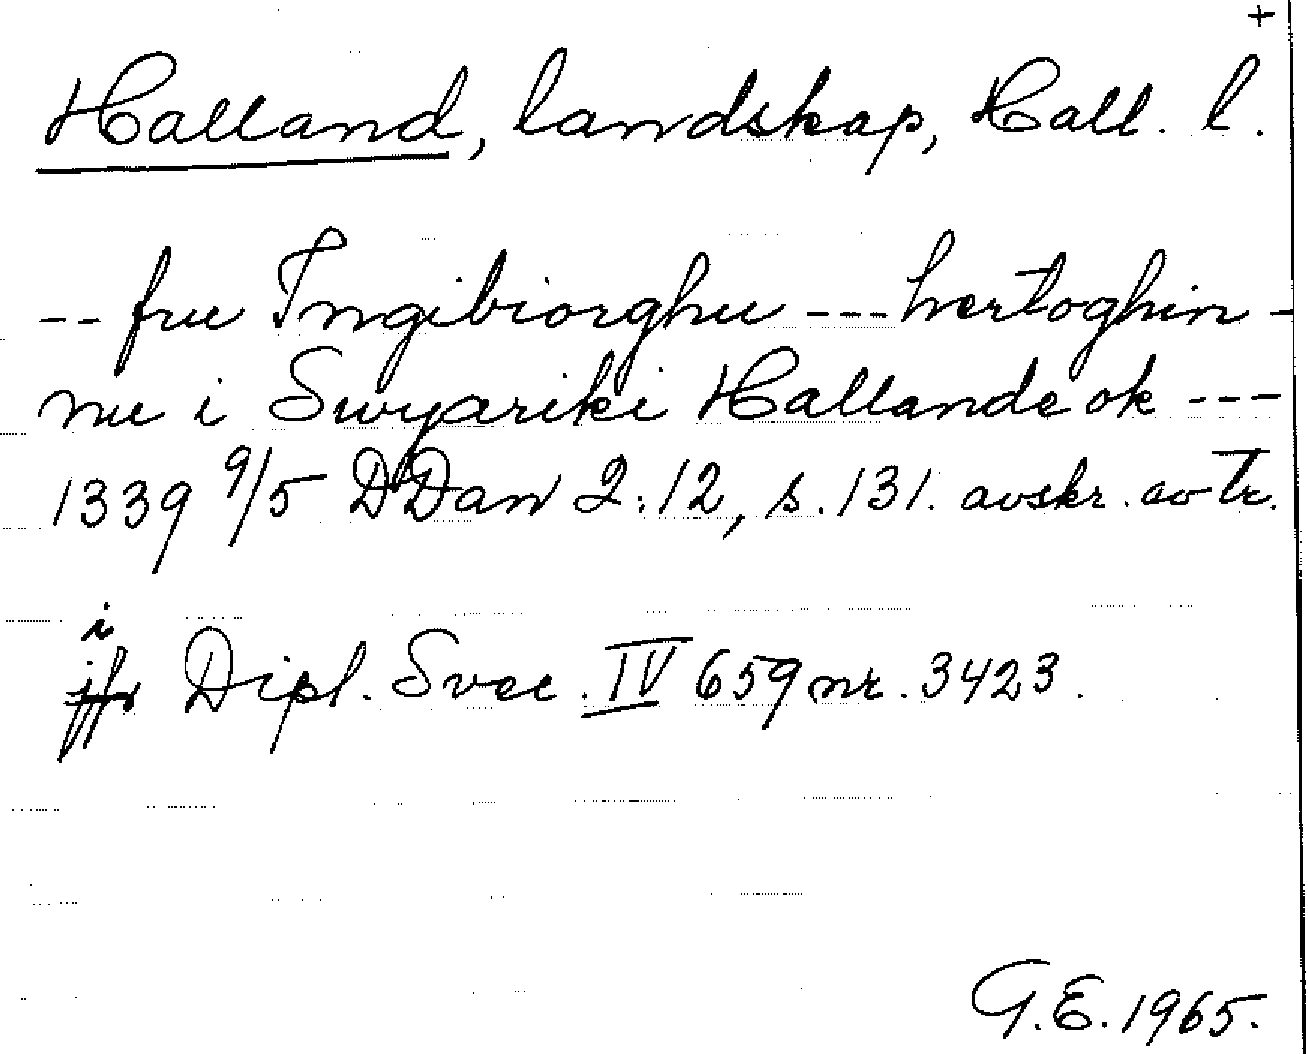 +
Halland, landskap, Hall. l.
-- frue Ingibiorghu --- hertoghin-
nu i Swyariki Hallande ok ---
1339 9/5 DDan 2:12, s. 131. avskr. av tr.
i
jfr Dipl. Svec. IV 659 nr. 3423.
G.E. 1965.